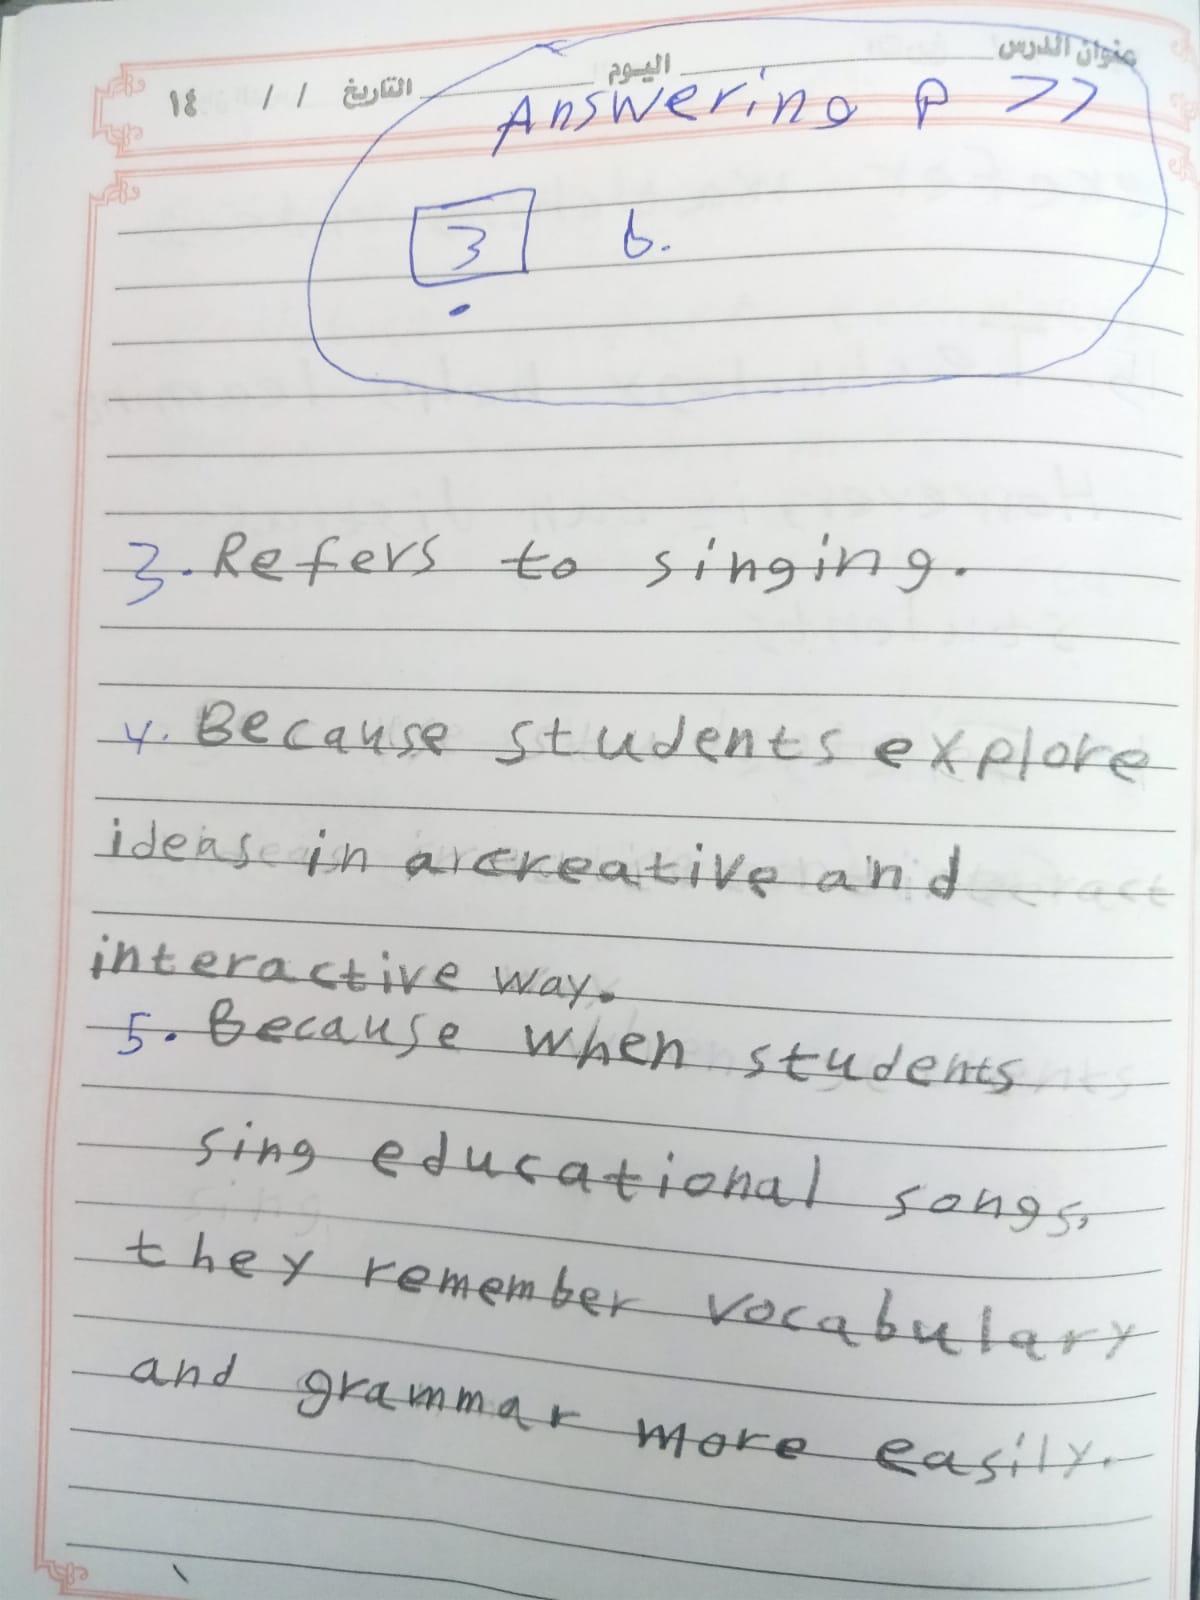 عنوان الدرس اليوم التاريخ / / ١٤
Answering P >>
3 b.
3. Refers to singing.
4. Because students explore
ideas in a creative and
interactive way.
5. Because when students
sing educational songs,
they remember vocabulary
and grammar more easily.